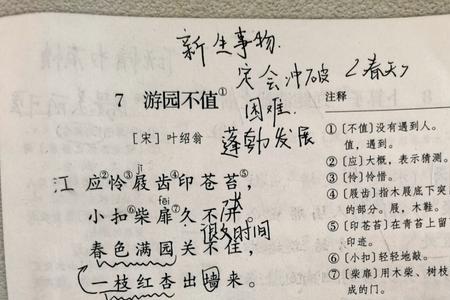 新生事物
定会冲破 〈春天〉
困难
蓬勃发展
7 游园不值①
[宋] 叶绍翁
江 应②怜③屐④齿印苍苔⑤,
jī
小扣⑥柴扉⑦久不开。
fēi
很多时间
春色满园关不住,
一枝红杏出墙来。
注释
①〔不值〕没有遇到人。
值,遇到。
②〔应〕大概,表示猜测。
③〔怜〕怜惜。
④〔屐齿〕指木屐底下突
的部分。屐,木鞋。
⑤〔印苍苔〕在青苔上留
印迹。
⑥〔小扣〕轻轻地敲。
⑦〔柴扉〕用木柴、树枝
成的门。